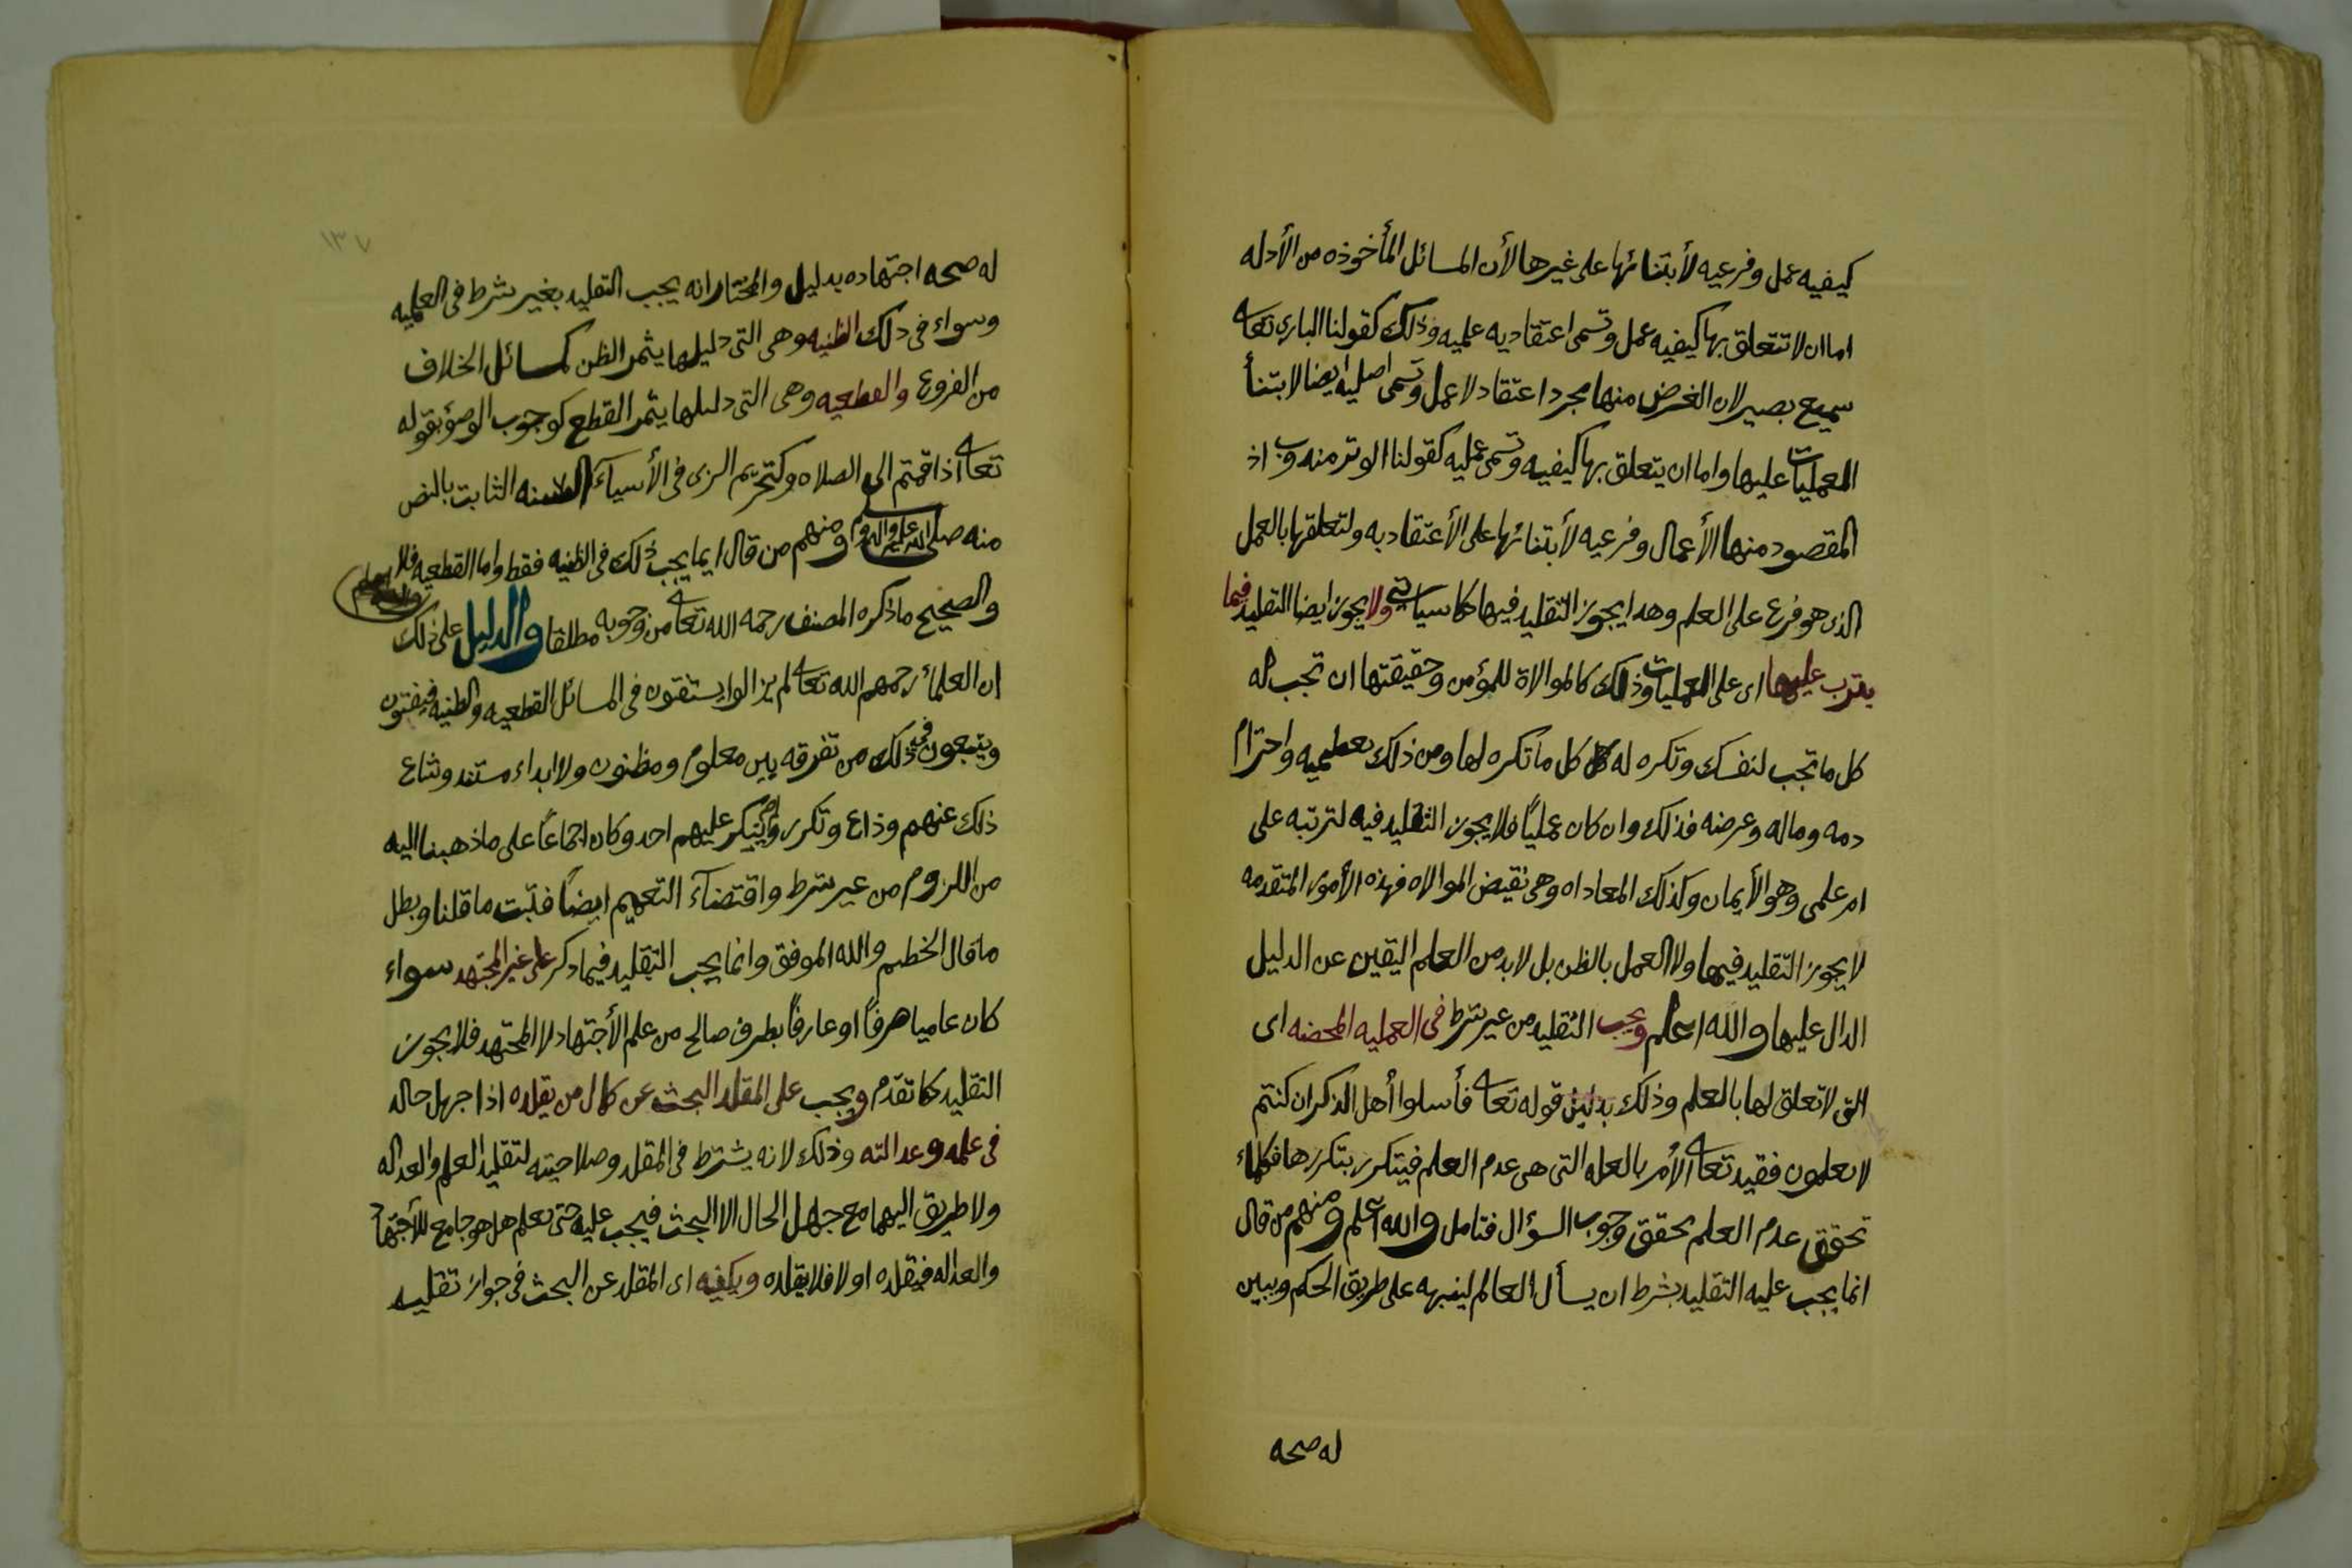 كيفيه عمل وفرعيه لأبتنائها على غيرها لأن المسائل المأخوذه من الأدله
اما ان لا تتعلق بها كيفيه عمل وتسمى اعتقاديه علميه وذلك كقولنا الباري تعالى
سميع بصير لان الغرض منها مجرد اعتقاد لا عمل وتسمى اصليه ايضا لابتنأ
العمليات عليها واما ان يتعلق بها كيفيه وتسمى عمليه كقولنا الوتر مندوب اذ
المقصود منها الأعمال وفرعيه لأبتنائها على الأعتقاديه ولتعلقها بالعمل
الذى هو فرع على العلم وهدا يجوز التقليد فيها كما سياتي ولا يجوز ايضا التقليد فيما
يترب عليها اى على العلميات وذلك كالموالاة للمؤمن وحقيقتها ان تحب له
كل ما تحب لنفسك وتكره له كل ما تكره لها ومن ذلك تعظيميه واحترام
دمه وماله وعرضه فذلك وان كان عمليًا فلا يجوز التقليد فيه لترتبه على
امر علمى وهو الأيمان وكذلك المعاداه وهى نقيض الموالاه فهذه الأمور المتقدمه
لا يجوز التقليد فيها ولا العمل بالظن بل لا بد من العلم اليقين عن الدليل
الدال عليها والله اعلم ويجب التقليد من غير شرط فى العمليه المحضه اى
التى لا تعلق لها بالعلم وذلك بدليل قوله تعالى فأسلوا أهل الذكر ان كنتم
لا تعلمون فقيد تعالى الأمر بالعله التى هى عدم العلم فيتكرر بتكررها فكلما
تحقق عدم العلم تحقق وجوب السؤال فتامل والله اعلم ومنهم من قال
انما يجب عليه التقليد بشرط ان يسأل العالم لينبهه على طريق الحكم ويبين
له صحه
١٣٧
له صحه اجتهاده بدليل والمختار انه يجب التقليد بغير شرط فى العمليه
وسواء فى ذلك الظنيه وهى التى دليلها يثمر الظن كمسائل الخلاف
من الفروع والقطعيه وهى التى دليلها يثمر القطع كوجوب الوضؤ بقوله
تعالى اذا قمتم الى الصلاه وكتحريم الربى فى الأشيآء الثابت بالنص
منه صلى الله عليه واله وسلم ومنهم من قال ايما يجب ذلك فى الظنيه فقط واما القطعيه فلا والله اعلم
والصحيح ما ذكره المصنف رحمه الله تعالى من وجوبه مطلقا والدليل على ذلك
ان العلمأ رحمهم الله تعالى لم يزالوا يستفتون فى المسائل القطعيه والظنيه فيفتون
ويتبعون فى ذلك من تفرقه بين معلوم ومظنون ولا ابداء مستند وشاع
ذلك عنهم وذاع وتكرر ولم ينكر عليهم احد وكان اجماعًا على ما ذهبنا اليه
من اللزوم من غير شرط واقتضآء التعميم ايضًا فثبت ما قلنا وبطل
ما قال الخصم والله الموفق وانما يجب التقليد فيما ذكر على غير المجتهد سواء
كان عاميا صرفًا او عارفًا بطرف صالح من علم الأجتهاد لا المجتهد فلا يجوز
التقليد كما تقدم ويجب على المقلد البحث عن كمال من يقلده اذا جهل حاله
فى علمه وعدالته وذلك لانه يشترط فى المقلد وصلاحيته لتقليد العلم والعداله
ولا طريق اليهما مع جهل الحال الا البحث فيجب عليه حتى تعلم هل هو جامع للأجتهاد
والعداله فيقلده او لا فلا يقلده ويكفيه اى المقلد عن البحث فى جواز تقليد